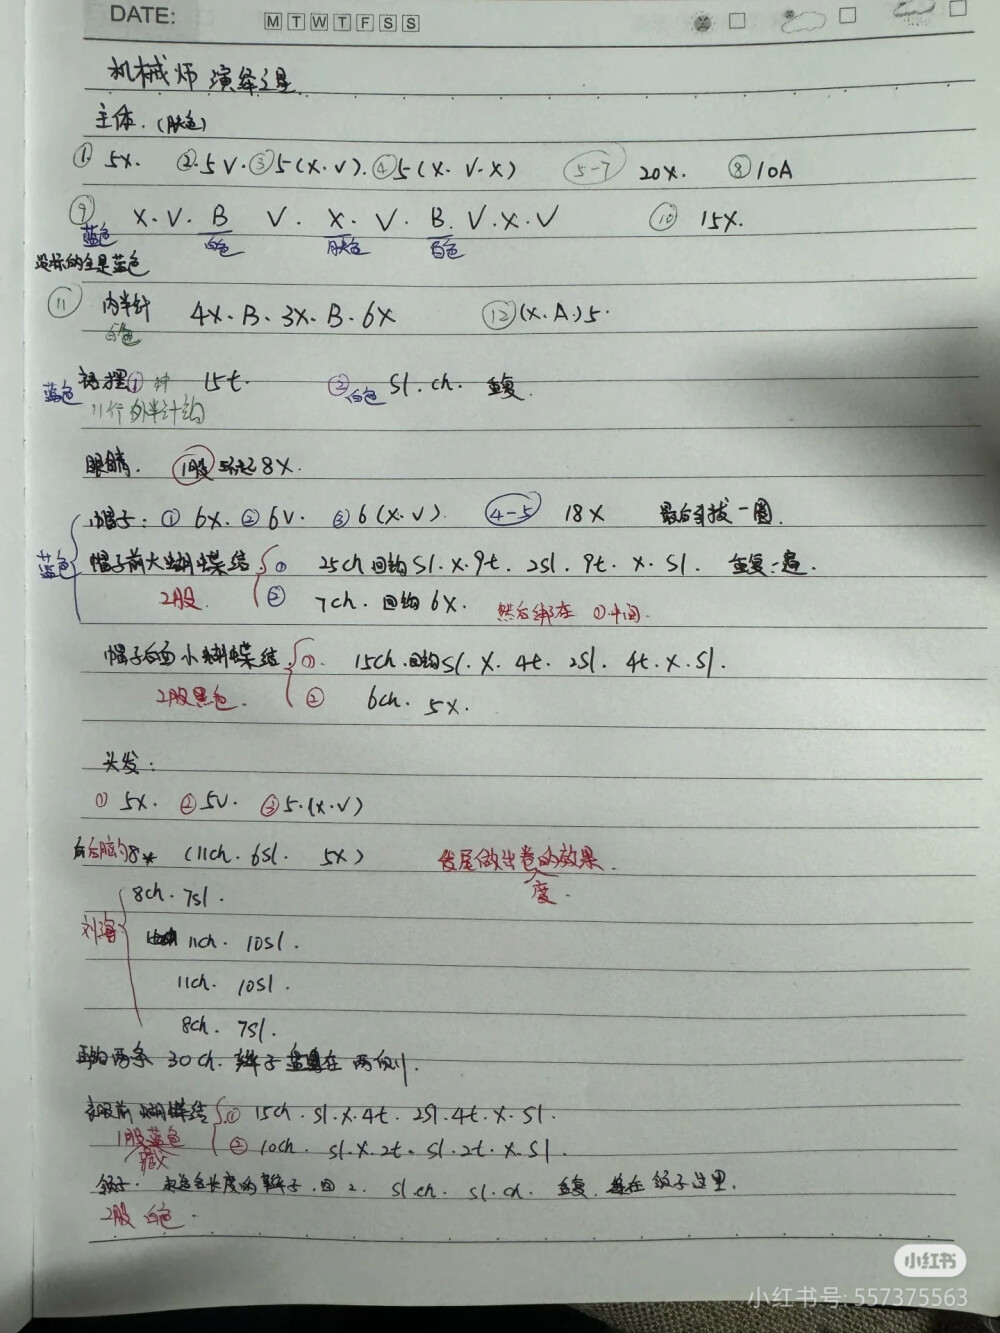 DATE: M T W T F S S
机械师 演绎之星
主体.(肤色)
① 5X. ② 5V. ③ 5(X.V). ④ 5(X.V.X) ⑤-7 20X. ⑧ 10A
⑨ X.V.B V.X.V.B.V.X.V ⑩ 15X.
蓝色 白色 肤色 白色
没标的全是蓝色
⑪ 内半针 4X.B.3X.B.6X ⑫ (X.A)5.
白色
蓝色 裙摆 ① 15t. ② 白色 sl.ch. 重复.
11行外半针钩
眼睛. 1股 环起8X.
蓝色
帽子: ① 6X. ② 6V. ③ 6(X.V). 4-5 18X 最后引拔一圈.
帽子前大蝴蝶结 ① 25ch 回钩 sl.X.9t.2sl.9t.X.sl. 重复一遍.
2股. ② 7ch.回钩6X. 然后绑在①中间.
帽子后面小蝴蝶结 ①. 15ch.回钩sl.X.4t.2sl.4t.X.sl.
2股黑色. ② 6ch. 5X.
头发:
① 5X. ② 5V. ③ 5.(X.V)
后脑勺8* (11ch.6sl. 5X) 发尾做出卷的效果.
度.
刘海 8ch.7sl.
11ch. 10sl.
11ch. 10sl.
8ch. 7sl.
再钩两条 30ch.辫子 在两侧.
衣服前蝴蝶结 ① 15ch.sl.X.4t.2sl.4t.X.sl.
1股蓝色
② 10ch. sl.X.2t.sl.2t.X.sl.
领子. 长度的辫子.回2. sl.ch. sl.ch. 重复. 在领子这里.
2股 白色.
小红书
小红书号: 557375563